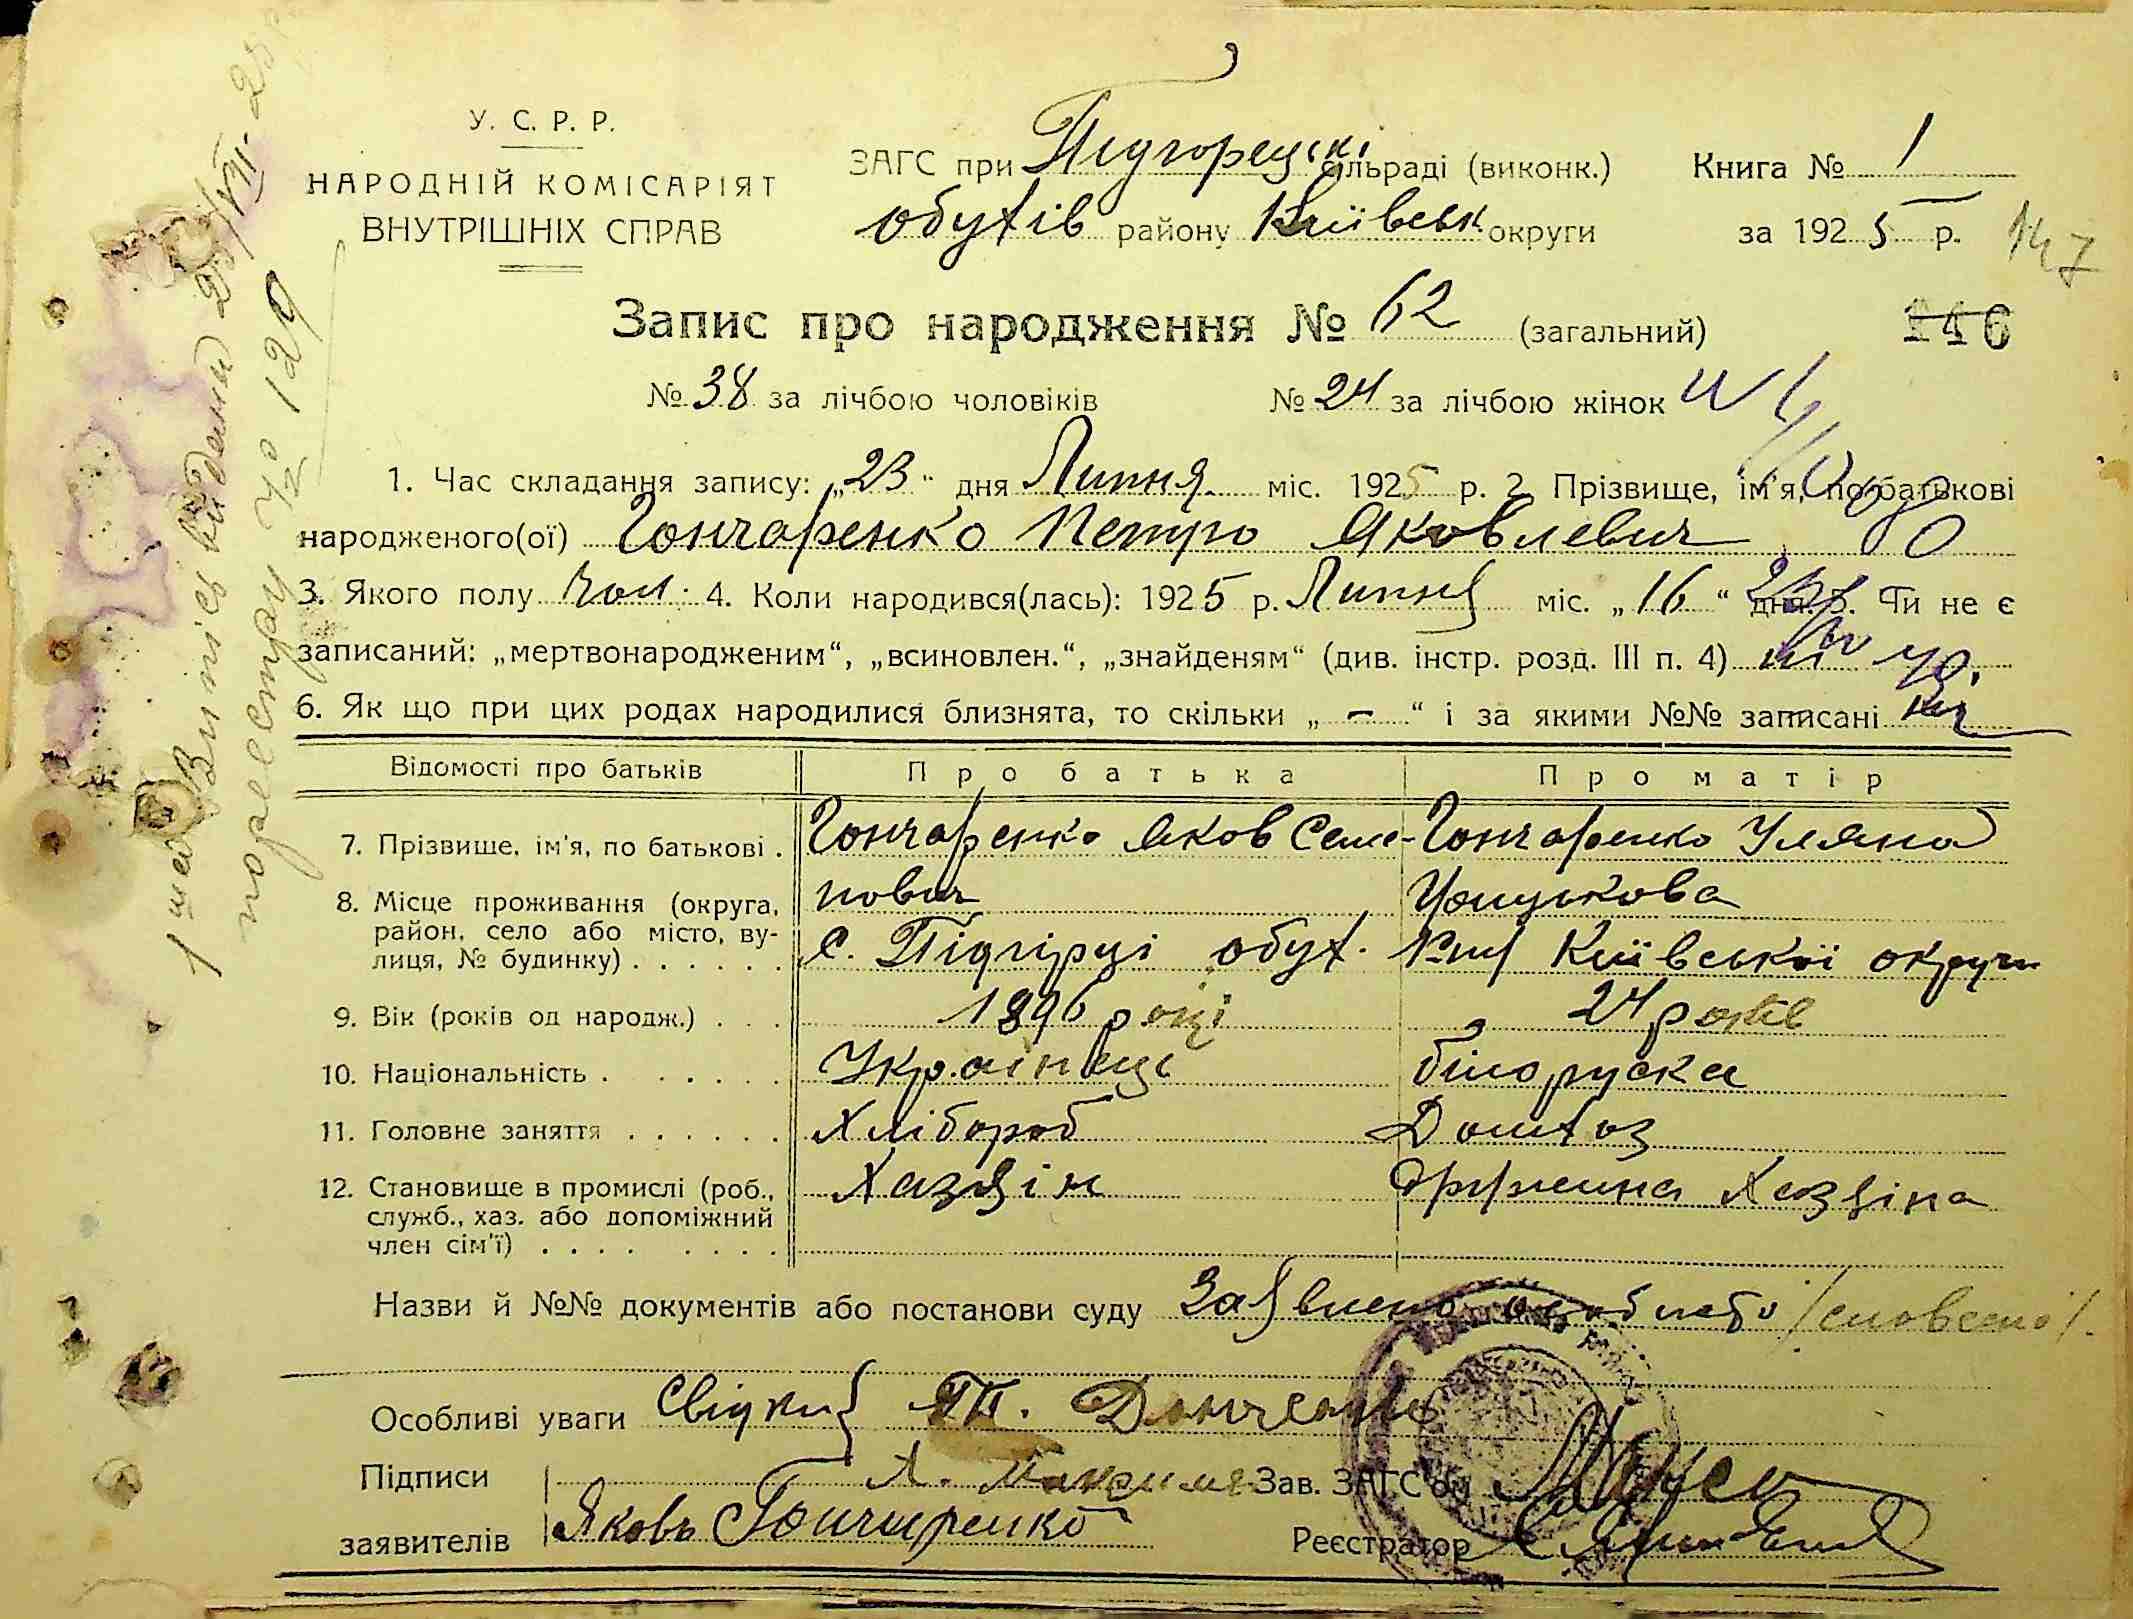 У. С. Р. Р.
НАРОДНІЙ КОМІСАРІЯТ
ВНУТРІШНІХ СПРАВ
ЗАГС при Підгорецькі сільраді (виконк.)
обухів району Київськ округи
Книга № 1
за 1925 р.
147
146
Запис про народження № 62 (загальний)
№ 38 за лічбою чоловіків № 24 за лічбою жінок
1. Час складання запису: „23“ дня Липня міс. 1925 р. 2. Прізвище, ім'я, по батькові
народженого(ої) Гончаренко Петро Яковлевич
3. Якого полу Чол. 4. Коли народився(лась): 1925 р. Липня міс. „16“ дня. 5. Чи не є
записаний: „мертвонародженим“, „всиновлен.“, „знайденям“ (див. інстр. розд. III п. 4) ні
6. Як що при цих родах народилися близнята, то скільки „ — “ і за якими №№ записані
Відомості про батьків Про батька Про матір
7. Прізвище, ім'я, по батькові . Гончаренко Яков Семе- Гончаренко Уляна
нович
8. Місце проживання (округа,
район, село або місто, ву-
лиця, № будинку) . . . . . . с. Підгірці обух. Київської округи
9. Вік (років од народж.) . . . 1896 році 24 років
10. Національність . . . . . . . Українець білоруска
11. Головне заняття . . . . . . Хлібороб Домхоз
12. Становище в промислі (роб.,
служб., хаз. або допоміжний
член сім'ї) . . . . . . . . Хазяін Дружина Хазяіна
Назви й №№ документів або постанови суду Заявлено особисто /словесно/.
Особливі уваги Свідки {
Підписи
заявителів Яковъ Гончаренко
Зав. ЗАГС'ом
Реєстратор
1 шт Витпісь видана 23/VII-25р
по реєстру № 129